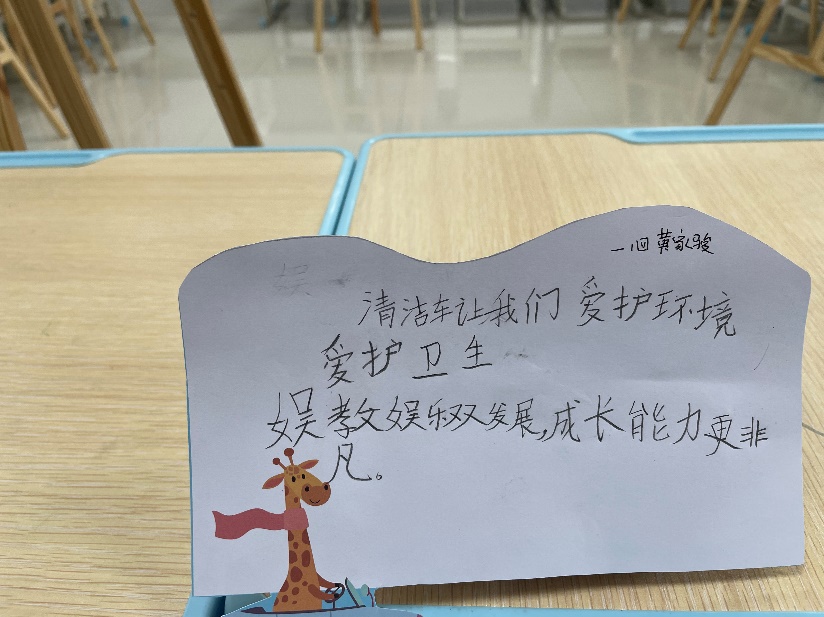 一回 黄家骏
清洁车让我们 爱护环境
爱护卫生
娱教文娱乐双发展,成长能力更非
凡。